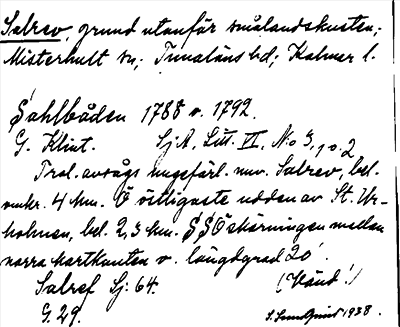 Salrev, grund utanför smålandskusten;
Misterhult sn; Tunaläns hd; Kalmar l.
Sahlbåden 1788 o. 1792.
G. Klint. Sj.A. Litt. VI, No 3, 1 o. 2
Trol. avsågs ungefärl. nuv. Salrev, bel.
omkr. 4 km. Ö östligaste udden av St. Ur-
holmen, bel. 2,3 km. SSÖ skärningen mellan
norra kartkanten o. längdgrad 20'.
Salref Sj: 64. (Händ!)
G. 29. S. Sundquist 1938.